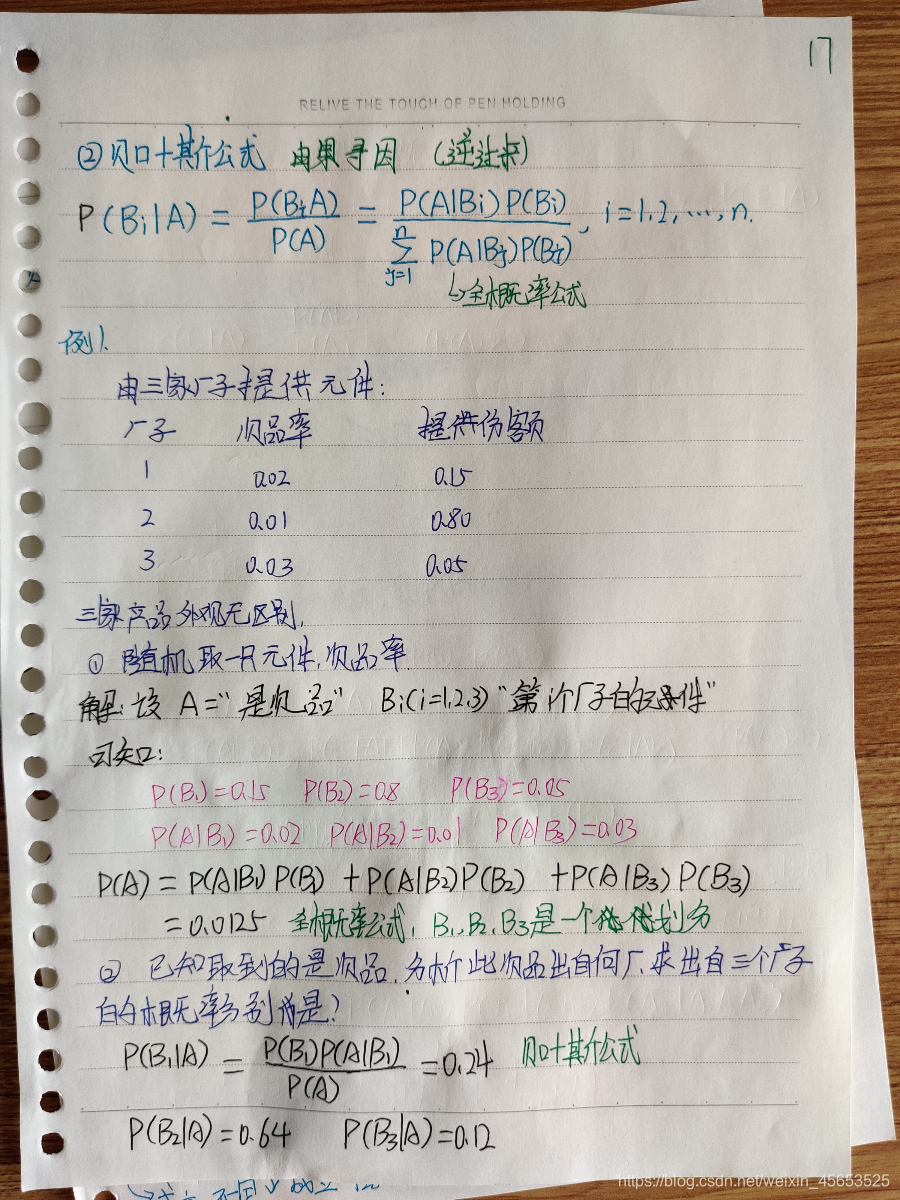 17
RELIVE THE TOUCH OF PEN HOLDING
②贝叶斯公式 由果寻因 (逆
P(Bi|A) = P(BiA)/P(A) = P(A|Bi)P(Bi)/∑(j=1→n) P(A|Bj)P(Bj), i=1,2,…,n.
↳全概率公式
例1.
由三家厂子提供元件:
厂子 次品率 提供份额
1 0.02 0.15
2 0.01 0.80
3 0.03 0.05
三家产品外观无区别,
① 随机取一只元件,次品率.
解:设 A="是次品" Bi(i=1,2,3)"第i个厂子的元件"
可知:
P(B1)=0.15 P(B2)=0.8 P(B3)=0.05
P(A|B1)=0.02 P(A|B2)=0.01 P(A|B3)=0.03
P(A) = P(A|B1)P(B1) + P(A|B2)P(B2) + P(A|B3)P(B3)
=0.0125 全概率公式, B1、B2、B3是一个 划分
② 已知取到的是次品,分析此次品出自何厂,求出自三个厂子
的概率分别 是?
P(B1|A) = P(B1)P(A|B1)/P(A) =0.24 贝叶斯公式
P(B2|A)=0.64 P(B3|A)=0.12
https://blog.csdn.net/weixin_45653525